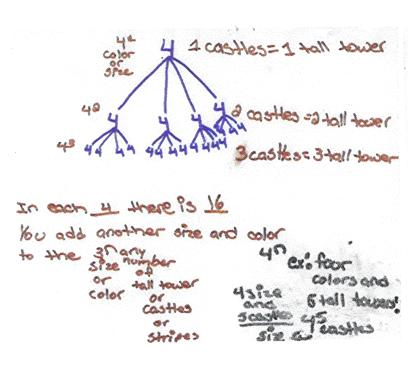 4¹ 4 1 castles = 1 tall tower
color
or
size
4² 4 4 4 4 2 castles = 2 tall tower
4³ 4 4 4 4 4 4 4 4 4 4 4 4
3 castles = 3 tall tower
In each 4 there is 16
You add another size and color
to the 3ⁿ any
size number
or of
color tall tower
or
castles
or
stripes
4ⁿ ex: four
colors and
4 size 5 tall towers!
and
5 castles 4⁵ castles
size